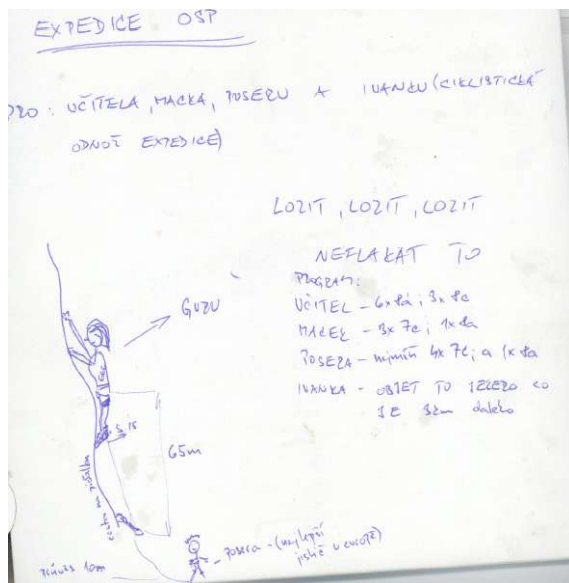 EXPEDICE OSP
PRO: UČITELA, MACKA, POSERU A IVANKU (CIKLISTICKÁ
ODNOŽ EXPEDICE)
LOZIT, LOZIT, LOZIT
NEFLAKAT TO
PROGRAM:
UČITEL - 6x 8a; 3x 8c
MACEK - 3x 7c; 1x 8a
POSERA - nejmíň 4x 7c; a 1x 8a
IVANKA - OBJET TO JEZERO CO
JE 32m daleko
GURU
65m
cesta na
Posera - (nejlepší
jistič v evropě)
10m